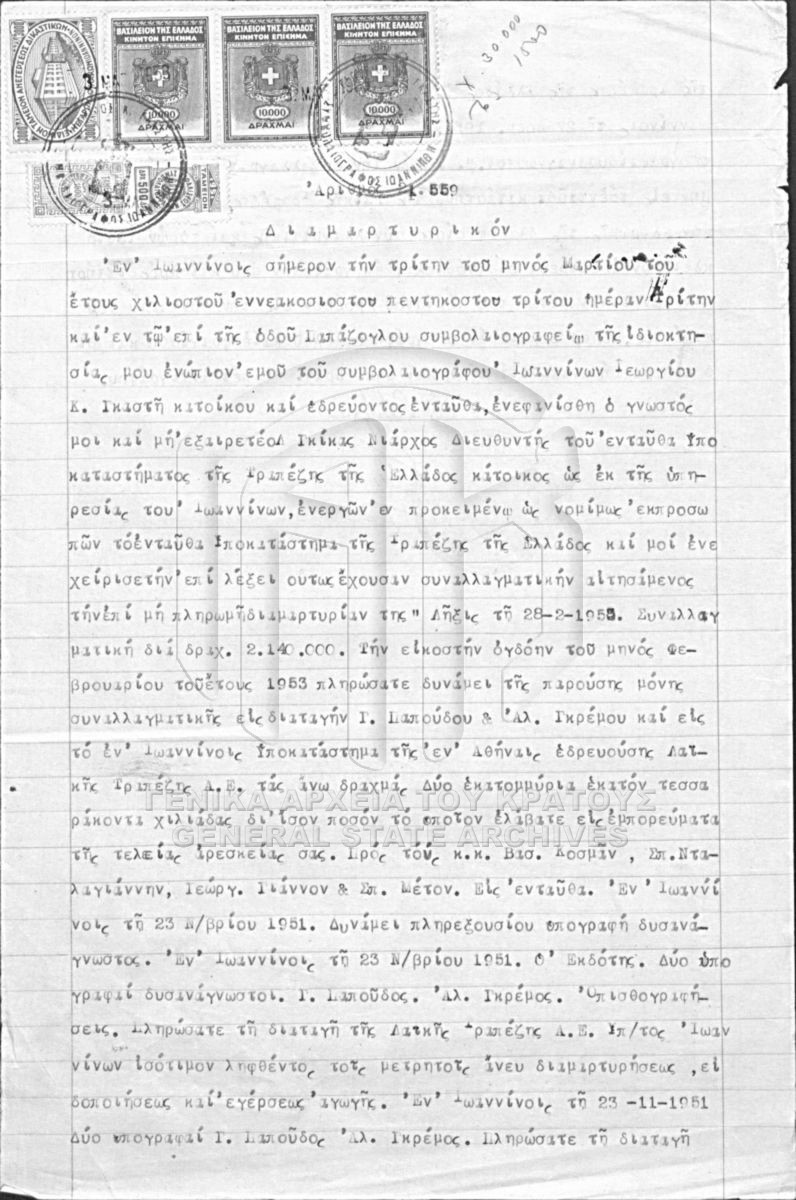 ΒΑΣΙΛΕΙΟΝ ΤΗΣ ΕΛΛΑΔΟΣ ΒΑΣΙΛΕΙΟΝ ΤΗΣ ΕΛΛΑΔΟΣ ΒΑΣΙΛΕΙΟΝ ΤΗΣ ΕΛΛΑΔΟΣ
ΚΙΝΗΤΟΝ ΕΠΙΣΗΜΑ ΚΙΝΗΤΟΝ ΕΠΙΣΗΜΑ ΚΙΝΗΤΟΝ ΕΠΙΣΗΜΑ
10.000 10.000 10.000
ΔΡΑΧΜΑΙ ΔΡΑΧΜΑΙ ΔΡΑΧΜΑΙ
30.000
Ἀριθμός 1.559
Διαμαρτυρικόν
Ἐν Ἰωαννίνοις σήμερον τήν τρίτην τοῦ μηνός Μαρτίου τοῦ
ἔτους χιλιοστοῦ ἐννεακοσιοστου πεντηκοστου τρίτου ἡμέραν Τρίτην
καί ἐν τῷ ἐπί τῆς ὁδοῦ Σαπάζογλου συμβολαιογραφείῳ τῆς ἰδιοκτη-
σίας μου ἐνώπιον ἐμοῦ τοῦ συμβολαιογράφου Ἰωαννίνων Γεωργίου
Κ. Γκαστῆ κατοίκου καί ἑδρεύοντος ἐνταῦθα, ἐνεφανίσθη ὁ γνωστός
μοι καί μή ἐξαιρετέος Γκίκας Νιάρχος Διευθυντής τοῦ ἐνταῦθα Ὑπο
καταστήματος τῆς Τραπέζης τῆς Ἑλλάδος κάτοικος ὡς ἐκ τῆς ὑπη-
ρεσίας του Ἰωαννίνων, ἐνεργῶν ἐν προκειμένῳ ὡς νομίμως ἐκπροσω
πῶν τό ἐνταῦθα Ὑποκατάστημα τῆς Τραπέζης τῆς Ἑλλάδος καί μοί ἐνε
χείρισε τήν ἐπί λέξει ουτως ἔχουσαν συναλλαγματικήν αἰτησάμενος
τήν ἐπί μή πληρωμῆ διαμαρτυρίαν της " Λῆξις τῆ 28-2-1953. Συναλλαγ
ματική διά δραχ. 2.140.000. Τήν εἰκοστήν ὀγδόην τοῦ μηνός Φε-
βρουαρίου τοῦ ἔτους 1953 πληρώσατε δυνάμει τῆς παρούσης μόνης
συναλλαγματικῆς εἰς διαταγήν Γ. Σαπούδου & Ἀλ. Γκρέμου καί εἰς
τό ἐν Ἰωαννίνοις Ὑποκατάστημα τῆς ἐν Ἀθήναις ἑδρευούσης Λαϊ-
κῆς Τραπέζης Α.Ε. τάς ἄνω δραχμάς Δύο ἑκατομμύρια ἑκατόν τεσσα
ράκοντα χιλιάδας δι' ἴσον ποσόν τό οποῖον ἐλάβατε εἰς ἐμπορεύματα
ΓΕΝΙΚΑ ΑΡΧΕΙΑ ΤΟΥ ΚΡΑΤΟΥΣ
GENERAL STATE ARCHIVES
τῆς τελείας ἀρεσκείας σας. Πρός τούς κ.κ. Βασ. Κοσμᾶν, Σπ. Ντα-
λαγιάννην, Γεώργ. Γιάννον & Σπ. Μέτον. Εἰς ἐνταῦθα. Ἐν Ἰωαννί
νοις τῆ 23 Ν/βρίου 1951. Δυνάμει πληρεξουσίου υπογραφή δυσανά-
γνωστος. Ἐν Ἰωαννίνοις τῆ 23 Ν/βρίου 1951. Ὁ Ἐκδότης. Δύο ὑπο
γραφαί δυσανάγνωστοι. Γ. Σαποῦδος. Ἀλ. Γκρέμος. Ὀπισθογραφή-
σεις. Πληρώσατε τῆ διαταγῆ τῆς Λαϊκῆς Τραπέζης Α.Ε. Ὑπ/τος Ἰωαν
νίνων ἰσότιμον ληφθέντος τοῖς μετρητοῖς ἄνευ διαμαρτυρήσεως, εἰ
δοποιήσεως καί ἐγέρσεως ἀγωγῆς. Ἐν Ἰωαννίνοις τῆ 23 -11-1951
Δύο υπογραφαί Γ. Σαποῦδος Ἀλ. Γκρέμος. Πληρώσατε τῆ διαταγῆ